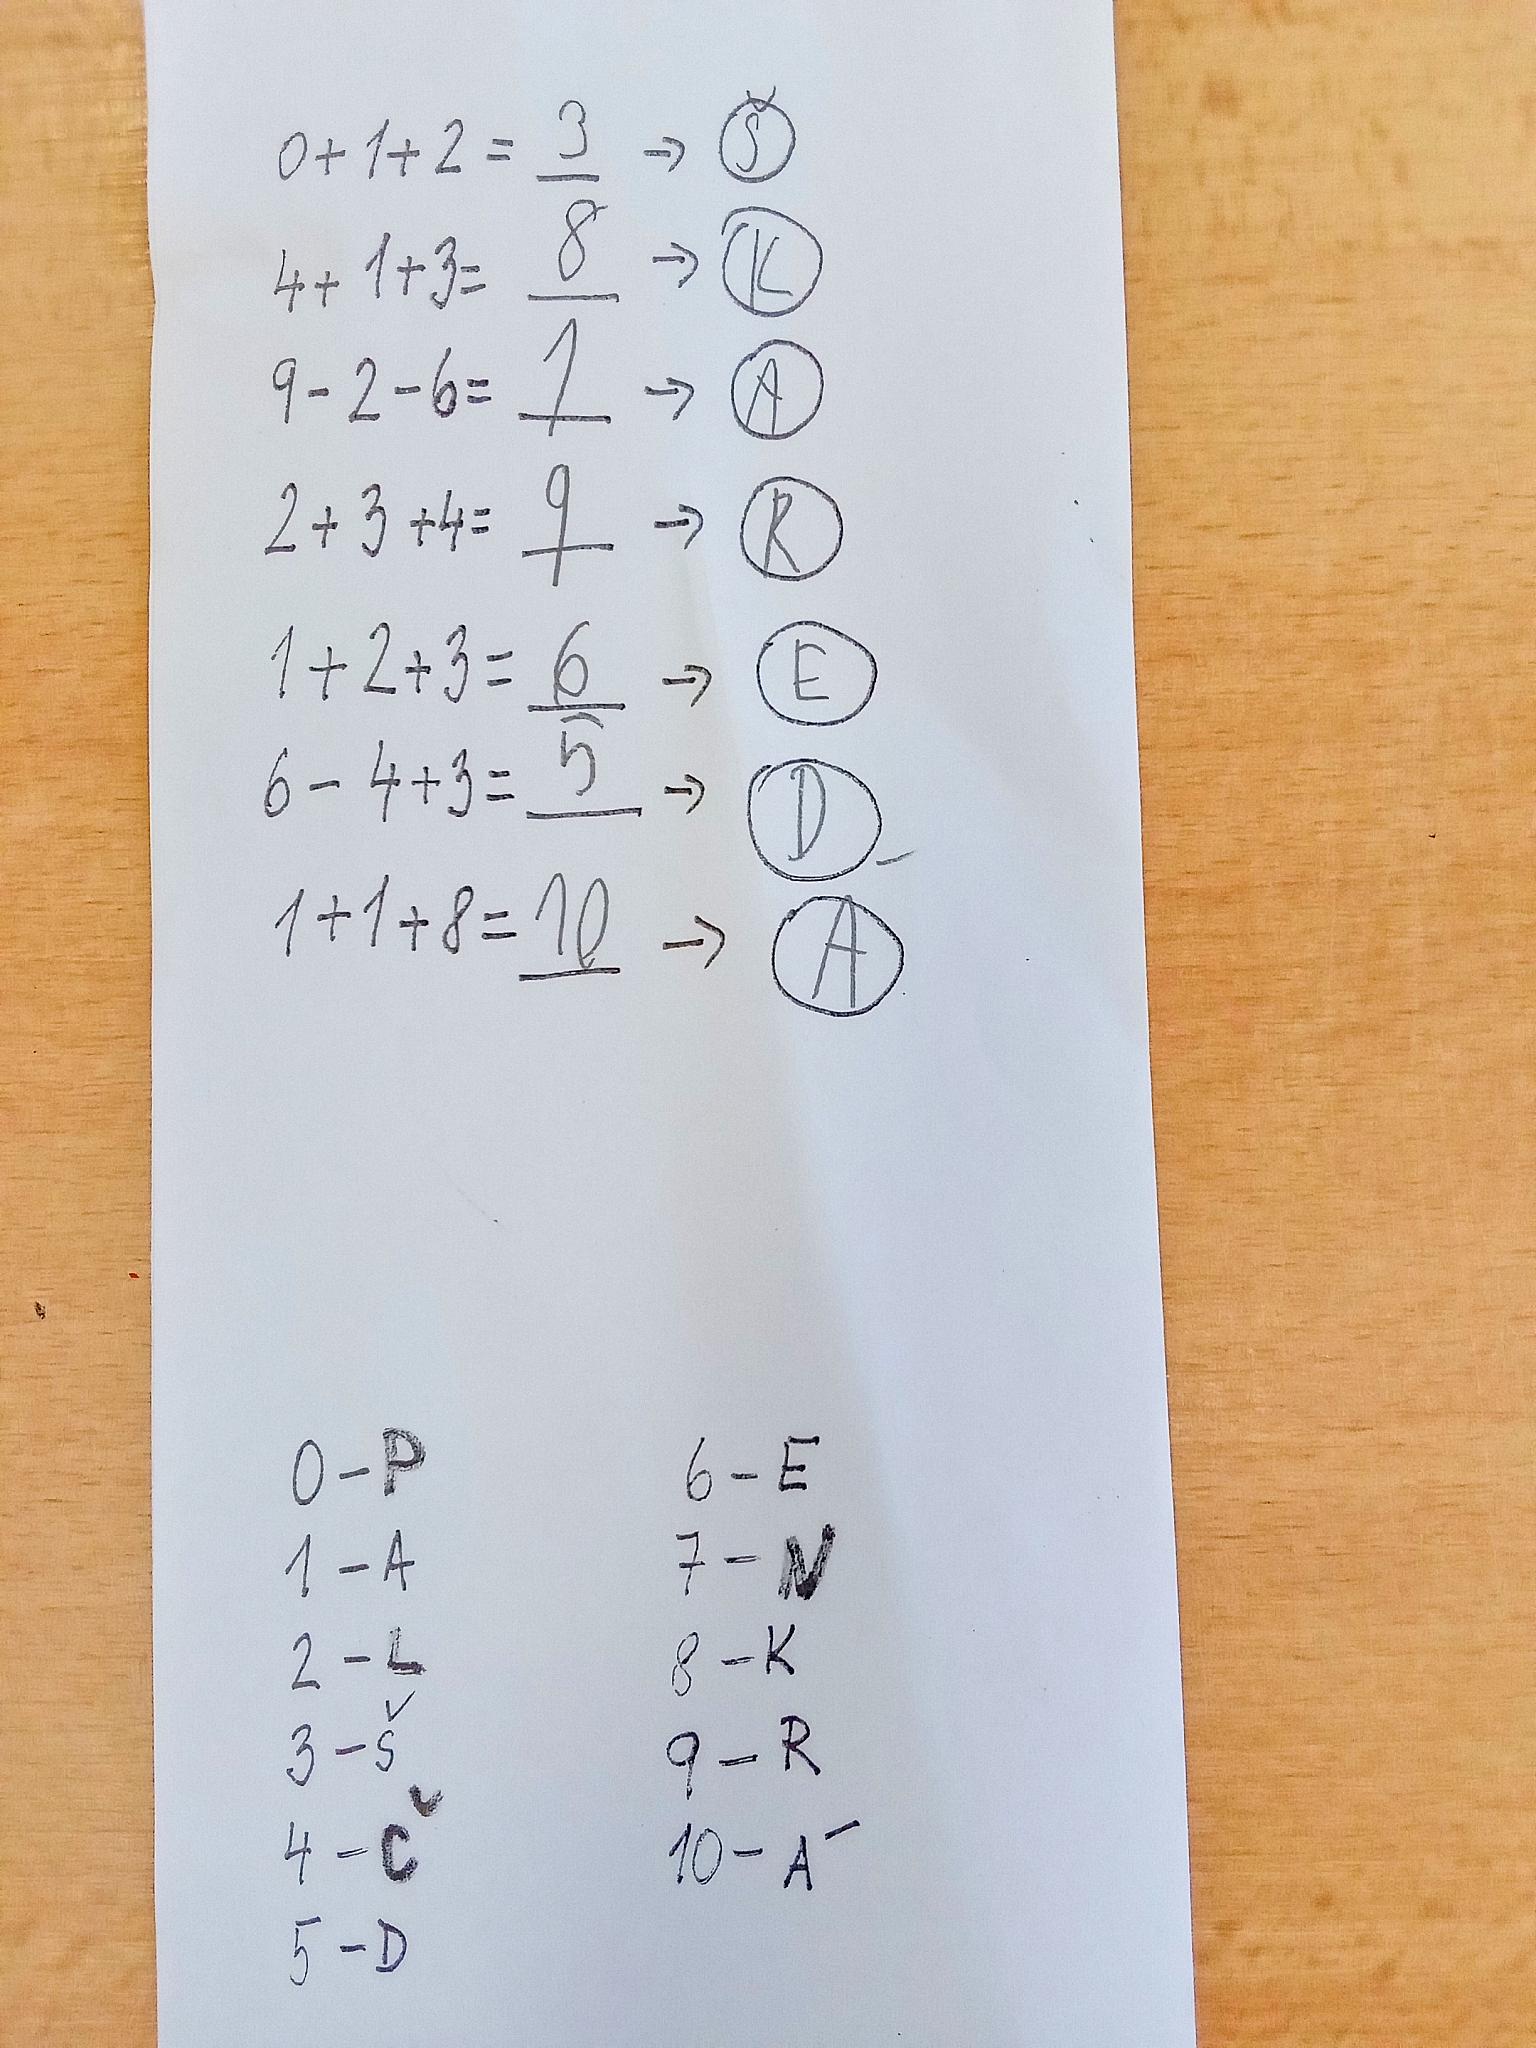 0+1+2=3 → Š
4+1+3=8 → K
9-2-6=1 → A
2+3+4=9 → R
1+2+3=6 → E
6-4+3=5 → D
1+1+8=10 → Á
0-P
1-A
2-L
3-Š
4-Č
5-D
6-E
7-N
8-K
9-R
10-Á